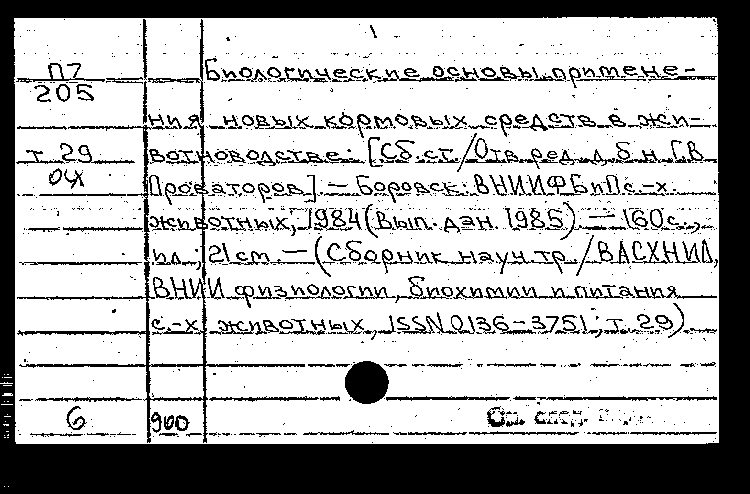 П7 Биологические основы примене-
205
ния новых кормовых средств в жи-
т. 29 вотноводстве: [Сб. ст./Отв. ред. д. б. н. Г.В.
ОЧ
Проваторов]. — Боровск: ВНИИФБиП с.-х.
животных, 1984 (Вып. дан. 1985). — 160с.,
ил.; 21 см. — (Сборник науч. тр. / ВАСХНИЛ,
ВНИИ физиологии, биохимии и питания
с.-х. животных, ISSN 0136-3751; т. 29)
6 900